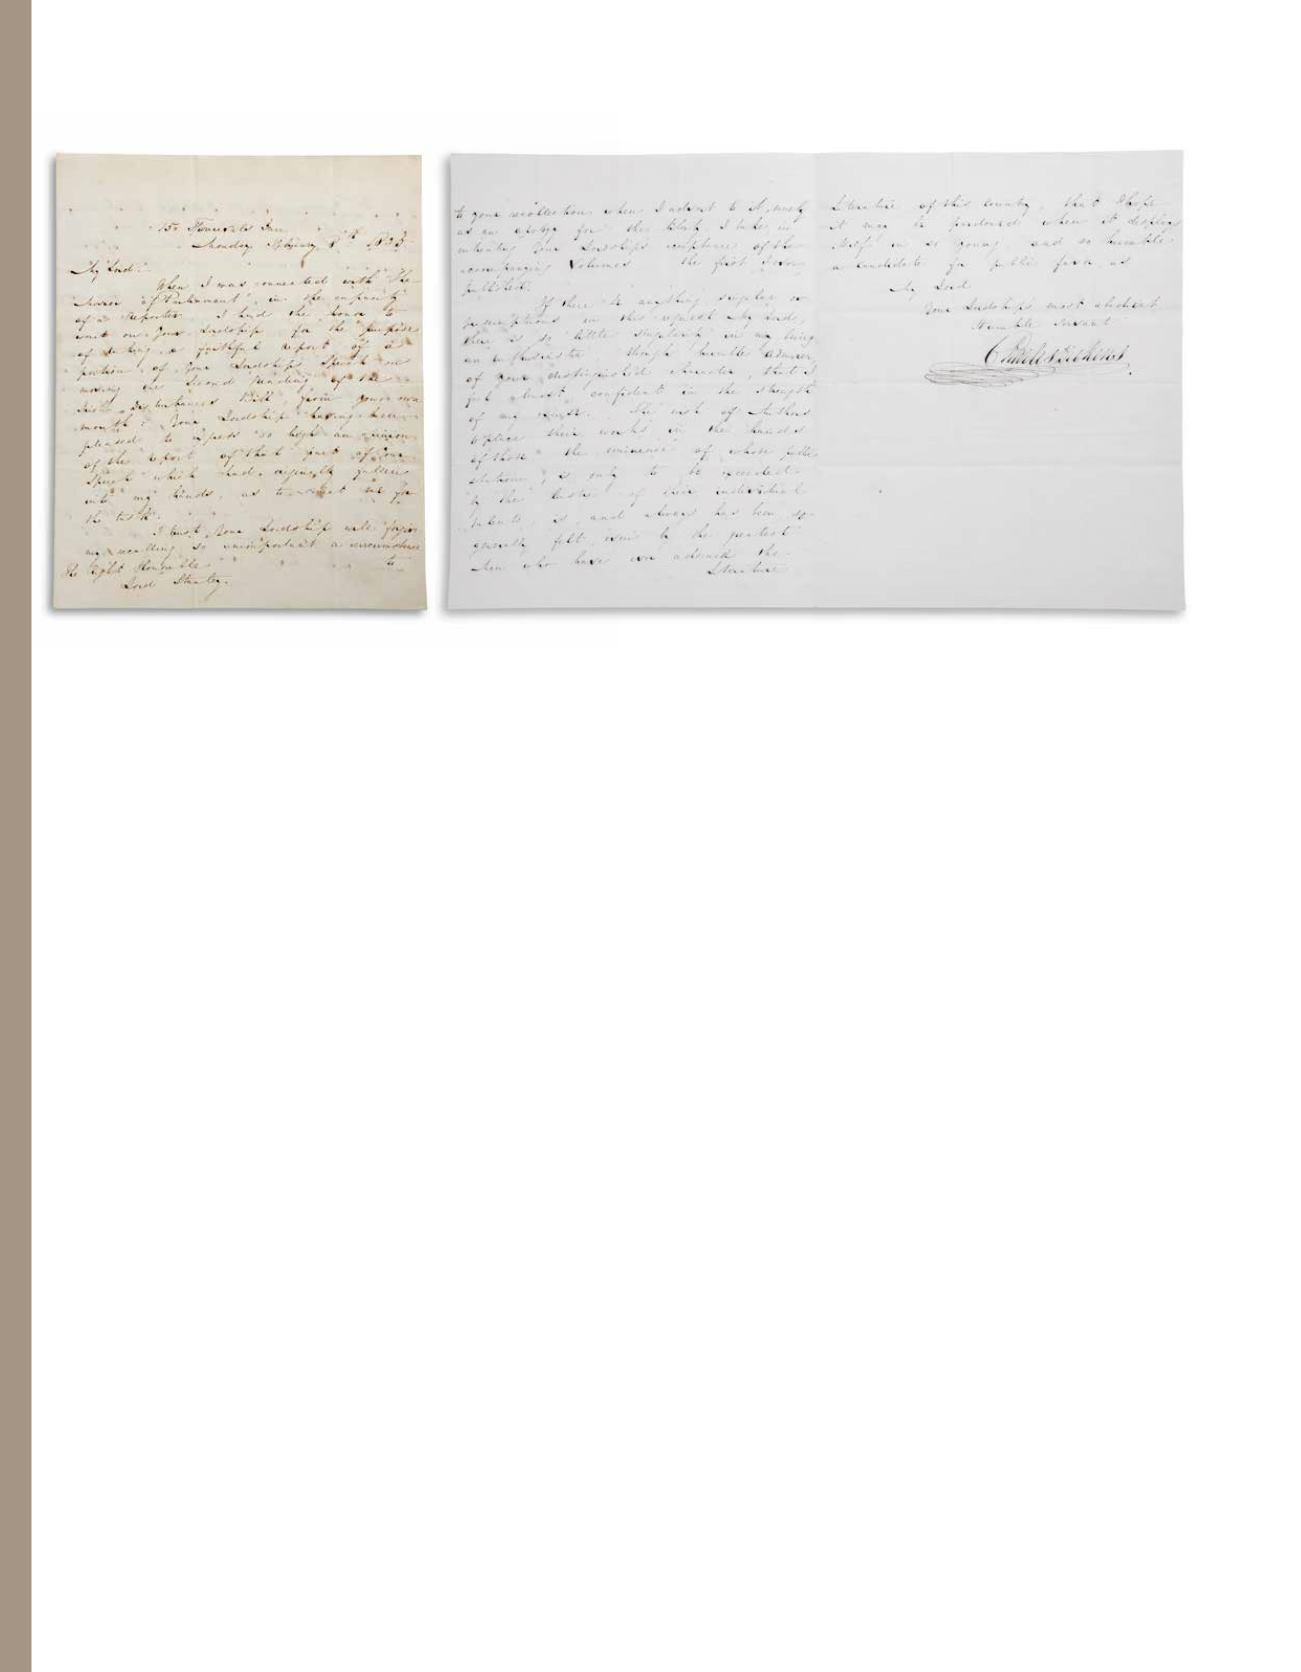 15. Furnivals Inn.
Monday February 8th
My Lord.
When I was connected with The
"Mirror of Parliament", in the capacity
of a Reporter I had the honor to
wait on Your Lordship for the purpose
of taking a faithful report of a
portion of Your Lordships Speech on
moving the Second Reading of the
Irish Disturbances Bill, from your own
mouth: Your Lordship having been
pleased to express so high an opinion
of the report of that part of Your
Speech which had originally fallen
into my hands, as to me for
the task.
I trust Your Lordship will forgive
my recalling so unimportant a circumstance
to
The Right Honorable
Lord Stanley.
to your recollection when I advert to it, merely
as an apology for the liberty I take in
Your Lordships acceptance of the
accompanying Volumes the first I ever
published.
If there be anything singular or
presumptuous in this request My Lord,
there is so little singularity in my being
an enthusiastic though humble admirer
of your distinguished character, that I
feel almost confident in the strength
of my The wish of Authors
to place their works in the hands
of those the eminence of whose public
stations, is only to be exceeded
by the lustre of their individual
talents, is, and always has been so
generally felt, even by the greatest
Men who have ever adorned the
Literature
Literature of this country, that I hope
it may be pardoned when it displays
itself in so young and so humble
a candidate for public favor, as
My Lord
Your Lordships most obedient
Humble Servant
Charles Dickens